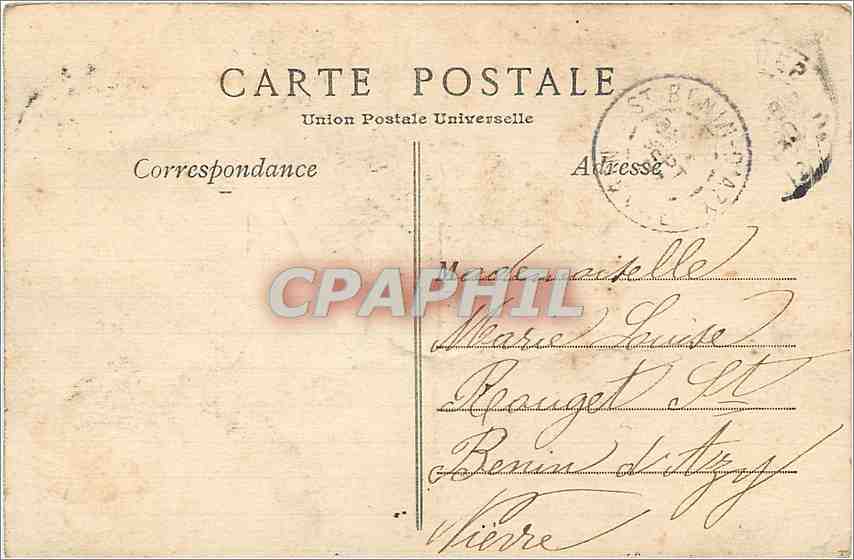 CARTE POSTALE
Union Postale Universelle
Correspondance
Adresse
ST BENIN-D'AZY
CPAPHIL
Mademoiselle
Marie Louise
Rouget St
Benin d'Azy
Nièvre